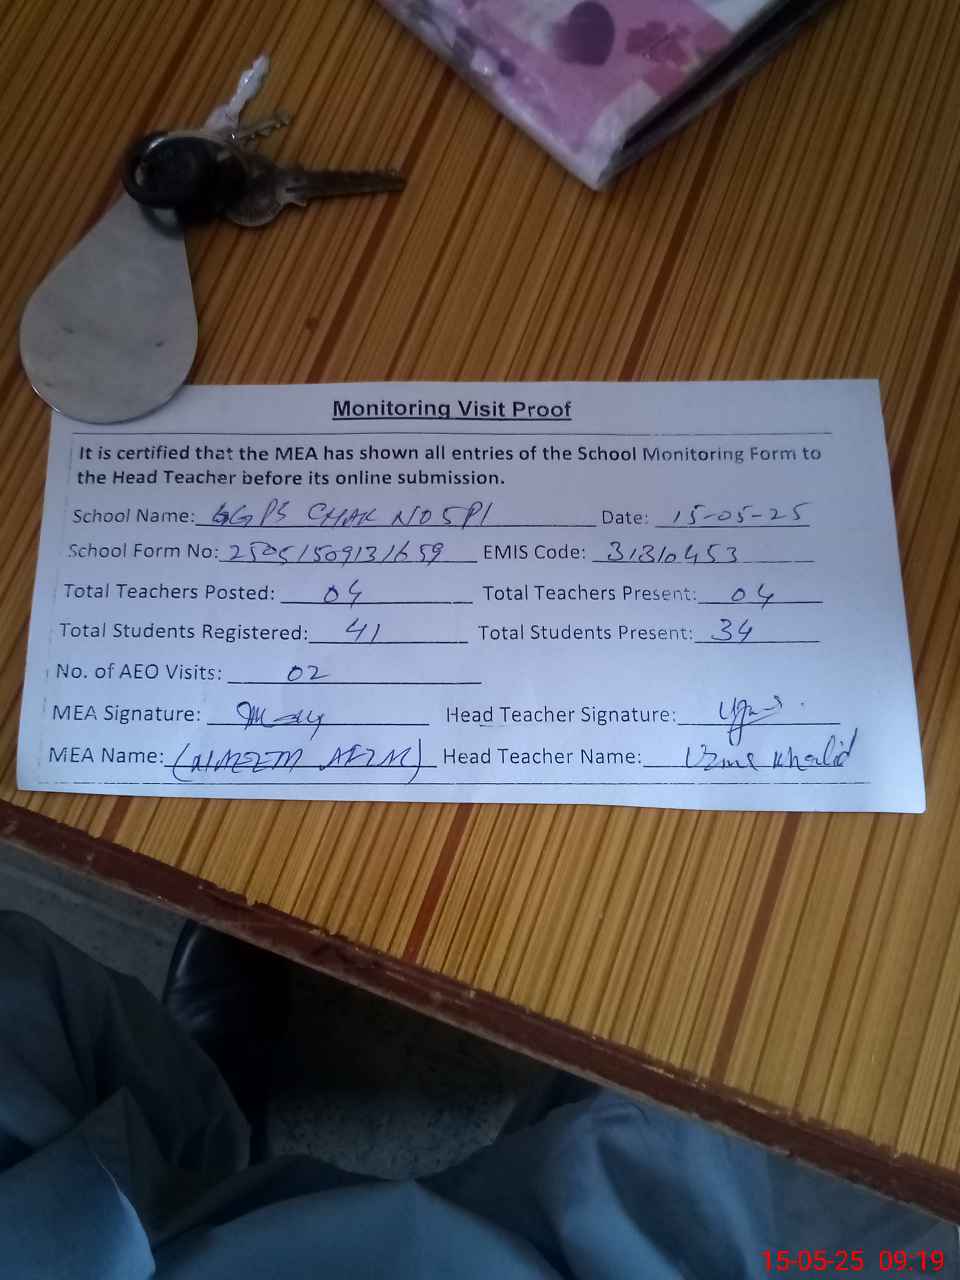 Monitoring Visit Proof
It is certified that the MEA has shown all entries of the School Monitoring Form to
the Head Teacher before its online submission.
School Name: GGPS CHAK NO 5P1 Date: 15-05-25
School Form No: 25051509131659 EMIS Code: 31310453
Total Teachers Posted: 04 Total Teachers Present: 04
Total Students Registered: 41 Total Students Present: 34
No. of AEO Visits: 02
MEA Signature: Head Teacher Signature:
MEA Name: Head Teacher Name: Uzma Khalid
15-05-25 09:19